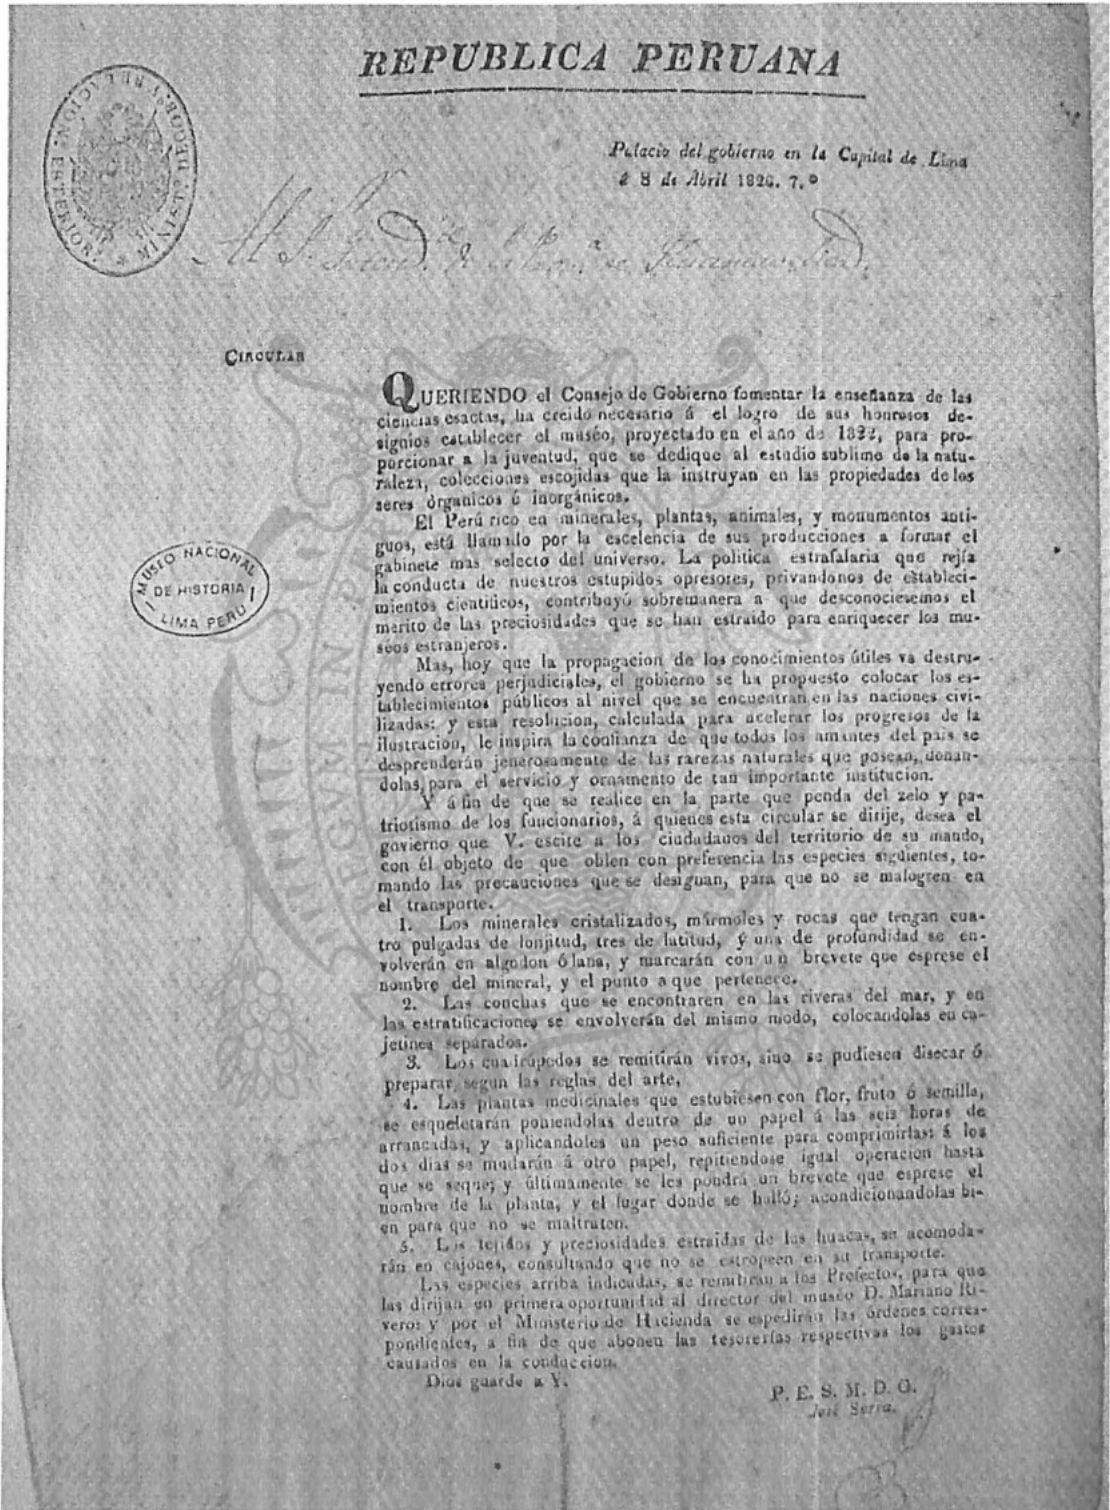 REPUBLICA PERUANA
Palacio del gobierno en la Capital de Lima
á 8 de Abril 1826. 7.º
MINIST.º DE GOB.º Y RELACION.ˢ ESTERIOR.ˢ
Al S.
CIRCULAR
QUERIENDO el Consejo de Gobierno fomentar la enseñanza de las
ciencias esactas, ha creido necesario á el logro de sus honrosos de-
signios establecer el muséo, proyectado en el año de 1822, para pro-
porcionar a la juventud, que se dedique al estudio sublime de la natu-
raleza, colecciones escojidas que la instruyan en las propiedades de los
seres órganicos é inorgánicos.
El Perú rico en minerales, plantas, animales, y monumentos anti-
guos, está llamado por la escelencia de sus producciones a formar el
gabinete mas selecto del universo. La politica estrafalaria que rejía
la conducta de nuestros estupidos opresores, privandonos de estableci-
mientos cientificos, contribuyó sobremanera a que desconociesemos el
merito de las preciosidades que se han estraido para enriquecer los mu-
séos estranjeros.
MUSEO NACIONAL
DE HISTORIA
LIMA PERU
Mas, hoy que la propagacion de los conocimientos útiles va destru-
yendo errores perjudiciales, el gobierno se ha propuesto colocar los es-
tablecimientos públicos al nivel que se encuentran en las naciones civi-
lizadas: y esta resolucion, calculada para acelerar los progresos de la
ilustracion, le inspira la confianza de que todos los amantes del pais se
desprenderán jenerosamente de las rarezas naturales que posean, donan-
dolas para el servicio y ornamento de tan importante institucion.
Y á fin de que se realice en la parte que penda del zelo y pa-
triotismo de los funcionarios, á quienes esta circular se dirije, desea el
govierno que V. escite a los ciudadanos del territorio de su mando,
con él objeto de que oblen con preferencia las especies sigüientes, to-
mando las precauciones que se designan, para que no se malogren en
el transporte.
1. Los minerales cristalizados, mármoles y rocas que tengan cua-
tro pulgadas de lonjitud, tres de latitud, y una de profundidad se en-
volverán en algodon ó lana, y marcarán con un brevete que esprese el
nombre del mineral, y el punto a que pertenece.
2. Las conchas que se encontraren en las riveras del mar, y en
las estratificaciones se envolverán del mismo modo, colocandolas en ca-
jetines separados.
3. Los cuadrúpedos se remitirán vivos, sino se pudiesen disecar ó
preparar, segun las reglas del arte.
4. Las plantas medicinales que estubiesen con flor, fruto ó semilla,
se esqueletarán poniendolas dentro de un papel á las seis horas de
arrancadas, y aplicandoles un peso suficiente para comprimirlas: á los
dos dias se mudarán á otro papel, repitiendose igual operacion hasta
que se seque; y últimamente se les pondrá un brevete que esprese el
nombre de la planta, y el lugar donde se halló; acondicionandolas bi-
en para que no se maltraten.
5. Los tejidos y preciosidades estraidas de las huacas, se acomoda-
rán en cajones, consultando que no se estropeen en su transporte.
Las especies arriba indicadas, se remitirán a los Prefectos, para que
las dirijan en primera oportunidad al director del museo D. Mariano Ri-
vero: y por el Ministerio de Hacienda se espedirán las órdenes corres-
pondientes, a fin de que abonen las tesorerías respectivas los gastos
causados en la conduccion.
Dios guarde a V.
P. E. S. M. D. G.
José Serra.